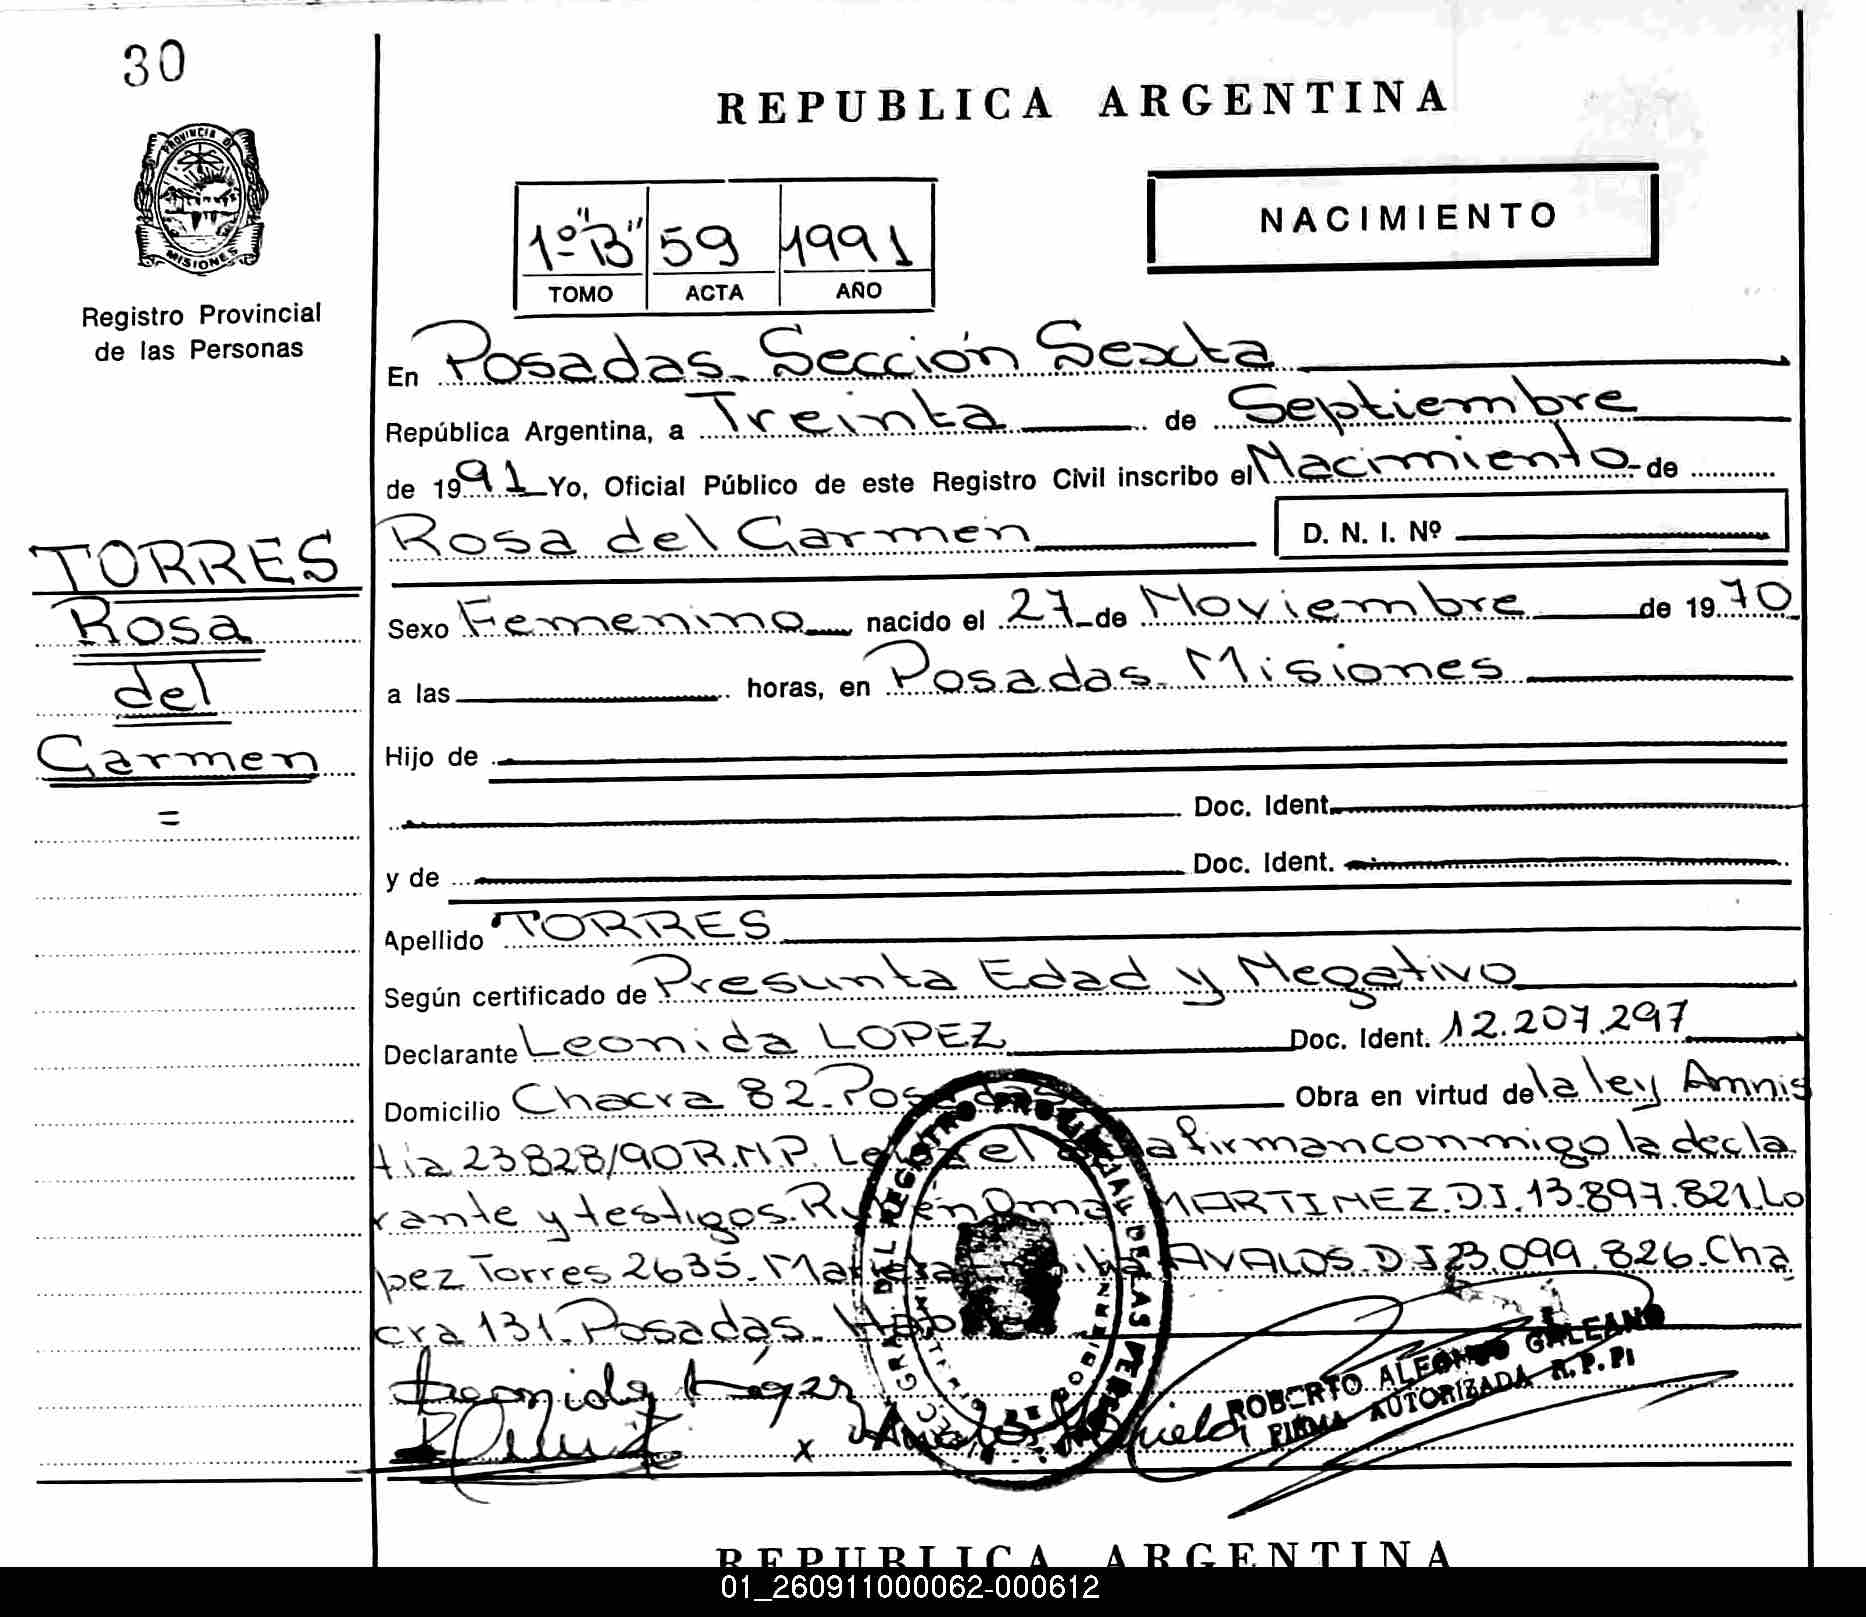 30
PROVINCIA DE
MISIONES
Registro Provincial
de las Personas
TORRES
Rosa
del
Carmen
=
REPUBLICA ARGENTINA
1º "B" 59 1991
TOMO ACTA AÑO
NACIMIENTO
En Posadas. Sección Sexta
República Argentina, a Treinta de Septiembre
de 1991 Yo, Oficial Público de este Registro Civil inscribo el Nacimiento de
Rosa del Carmen D. N. I. Nº
Sexo Femenino nacido el 27 de Noviembre de 1970
a las horas, en Posadas. Misiones
Hijo de
Doc. Ident.
y de Doc. Ident.
Apellido TORRES
Según certificado de Presunta Edad y Negativo
Declarante Leonida LOPEZ Doc. Ident. 12.207.297
Domicilio Chacra 82. Posadas Obra en virtud de la ley Amnis
tia 23828/90 R.N.P. el firman conmigo la decla
rante y testigos. Rubén Omar MARTINEZ. D.I. 13.897.821. Lo
pez Torres 2635. AVALOS. D I 23.099.826. Cha
cra 131. Posadas.
Leonida López
x Avalos
ROBERTO ALFONSO GALEANO
FIRMA AUTORIZADA R.P.P.
DEL REGISTRO PROVINCIAL DE LAS PERS
REPUBLICA ARGENTINA
01_260911000062-000612